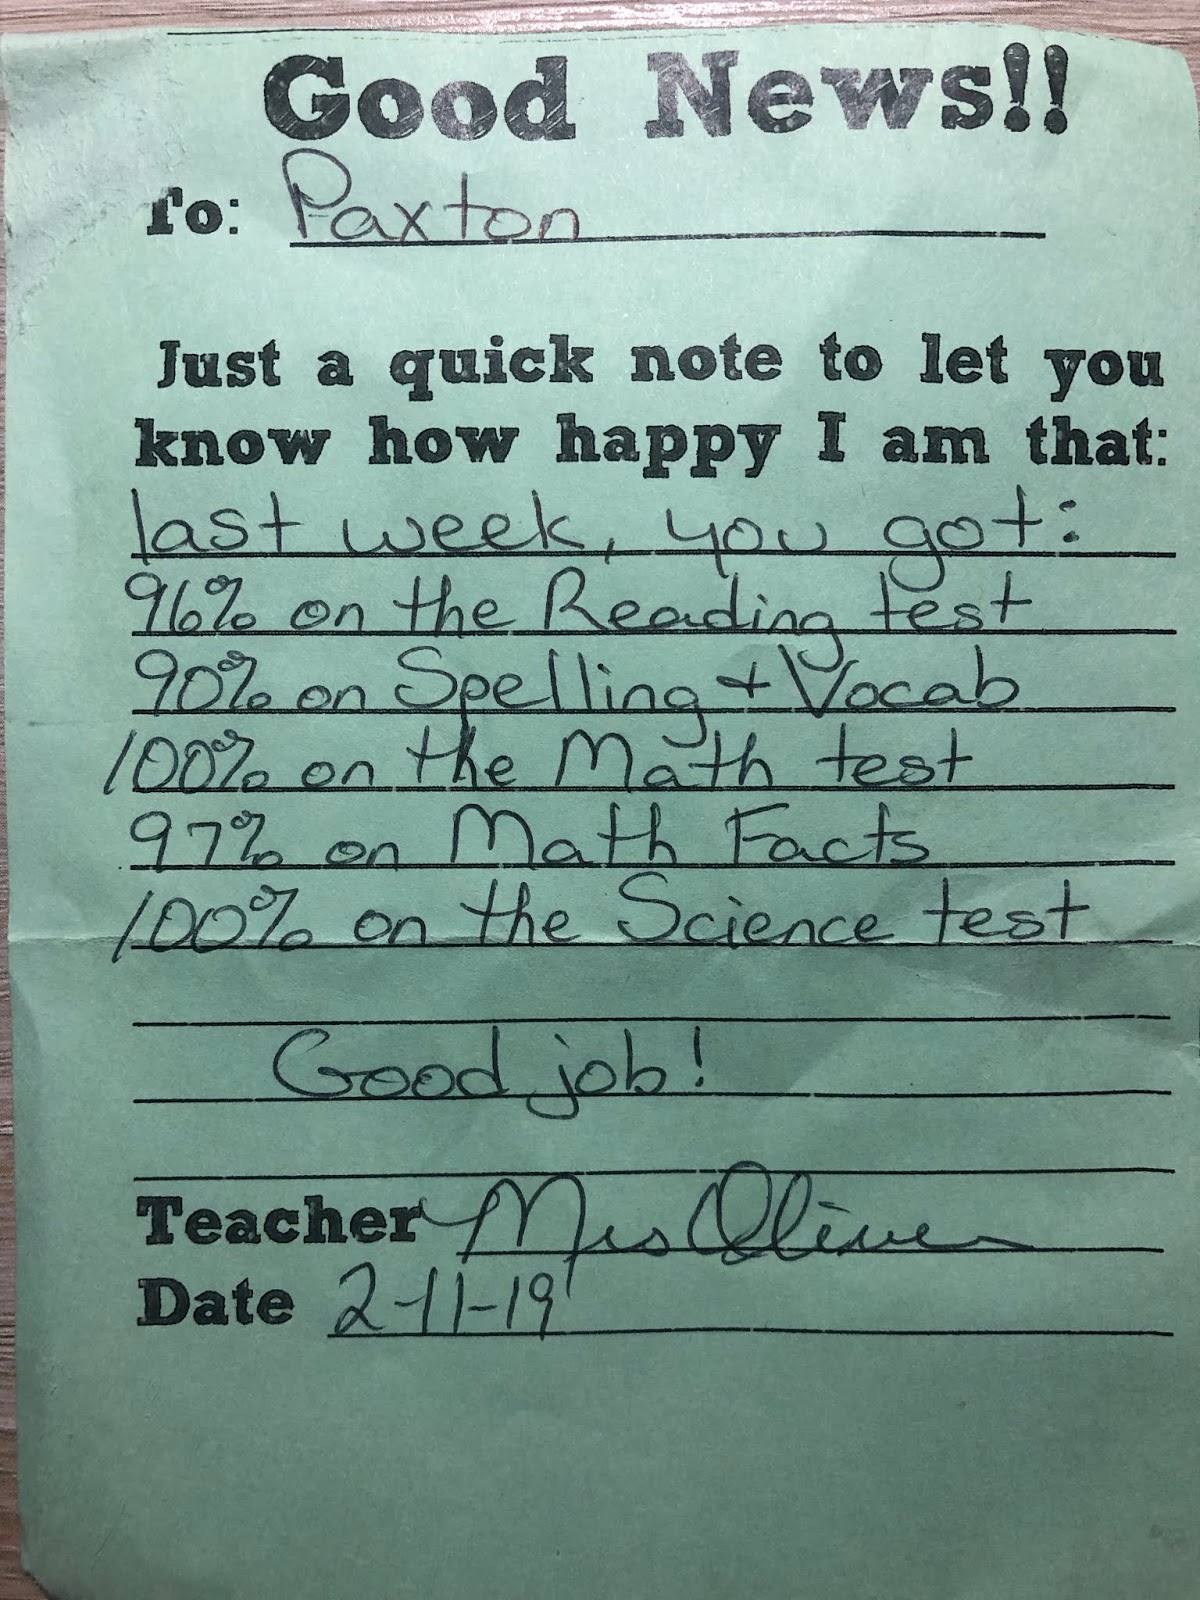 Good News!!
To: Paxton
Just a quick note to let you
know how happy I am that:
last week, you got:
96% on the Reading test
90% on Spelling + Vocab
100% on the Math test
97% on Math Facts
100% on the Science test
Good job!
Teacher Mrs Oliver
Date 2-11-19